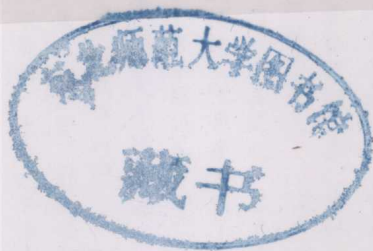 师范大学图书馆
藏书